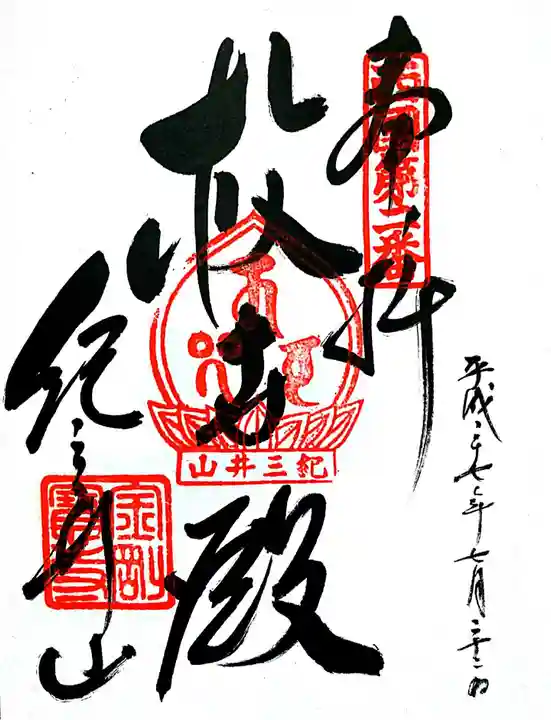 平成二七年七月二十二日
奉拝
西国第二番
救世殿
紀三井山
紀三井山
金剛寶寺